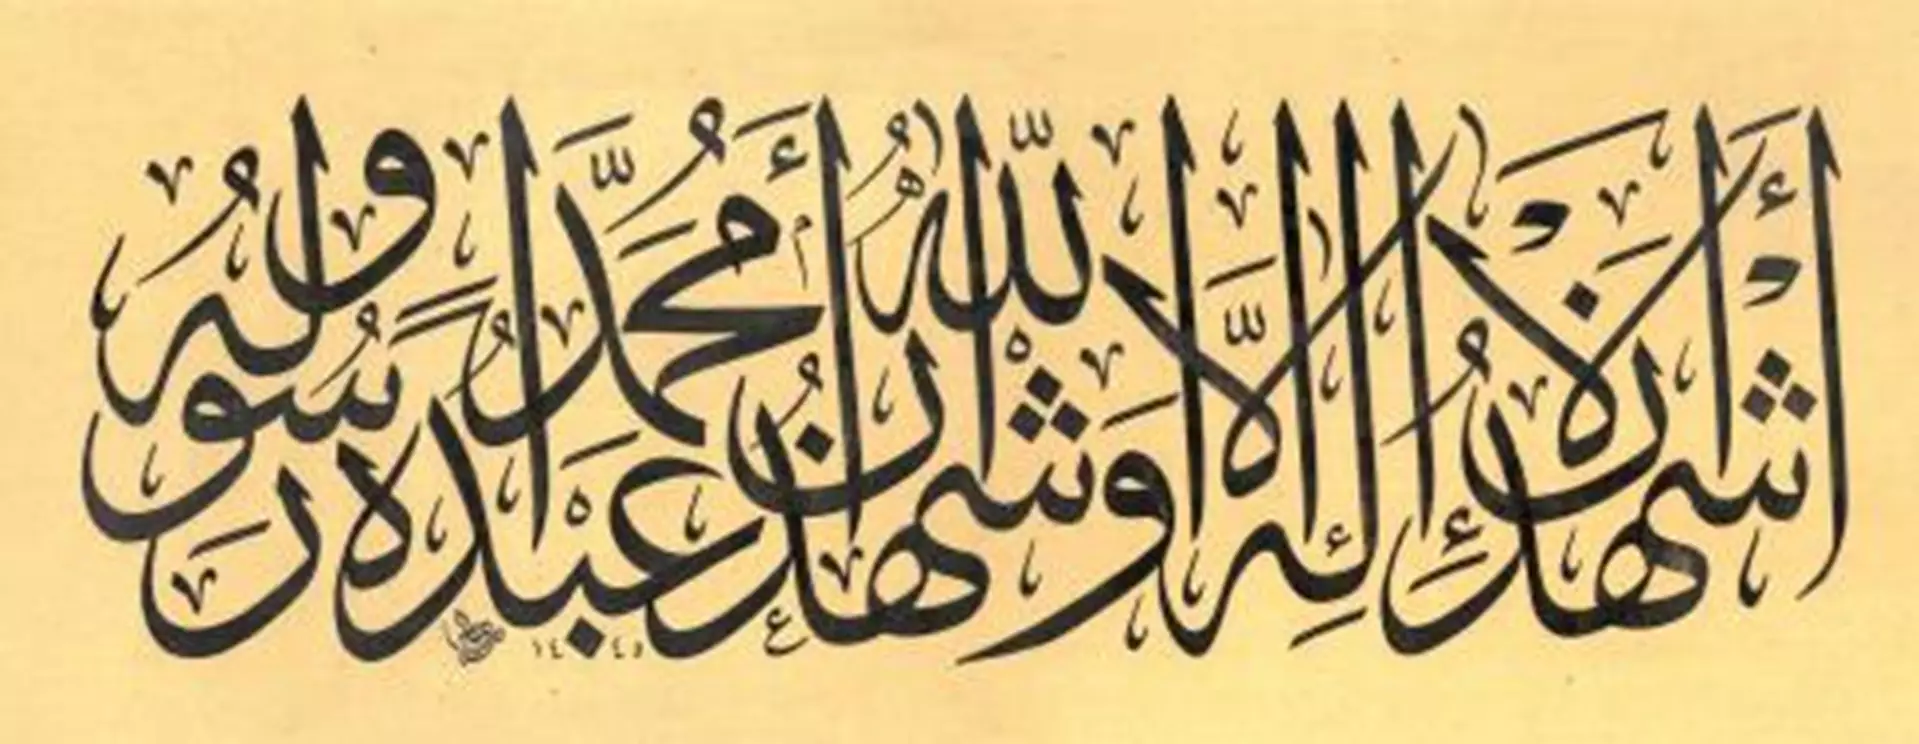 أَشْهَدُ أَنْ لَا إِلَٰهَ إِلَّا اللّٰهُ وَأَشْهَدُ أَنَّ مُحَمَّدًا عَبْدُهُ وَرَسُولُهُ
١٤٤٥